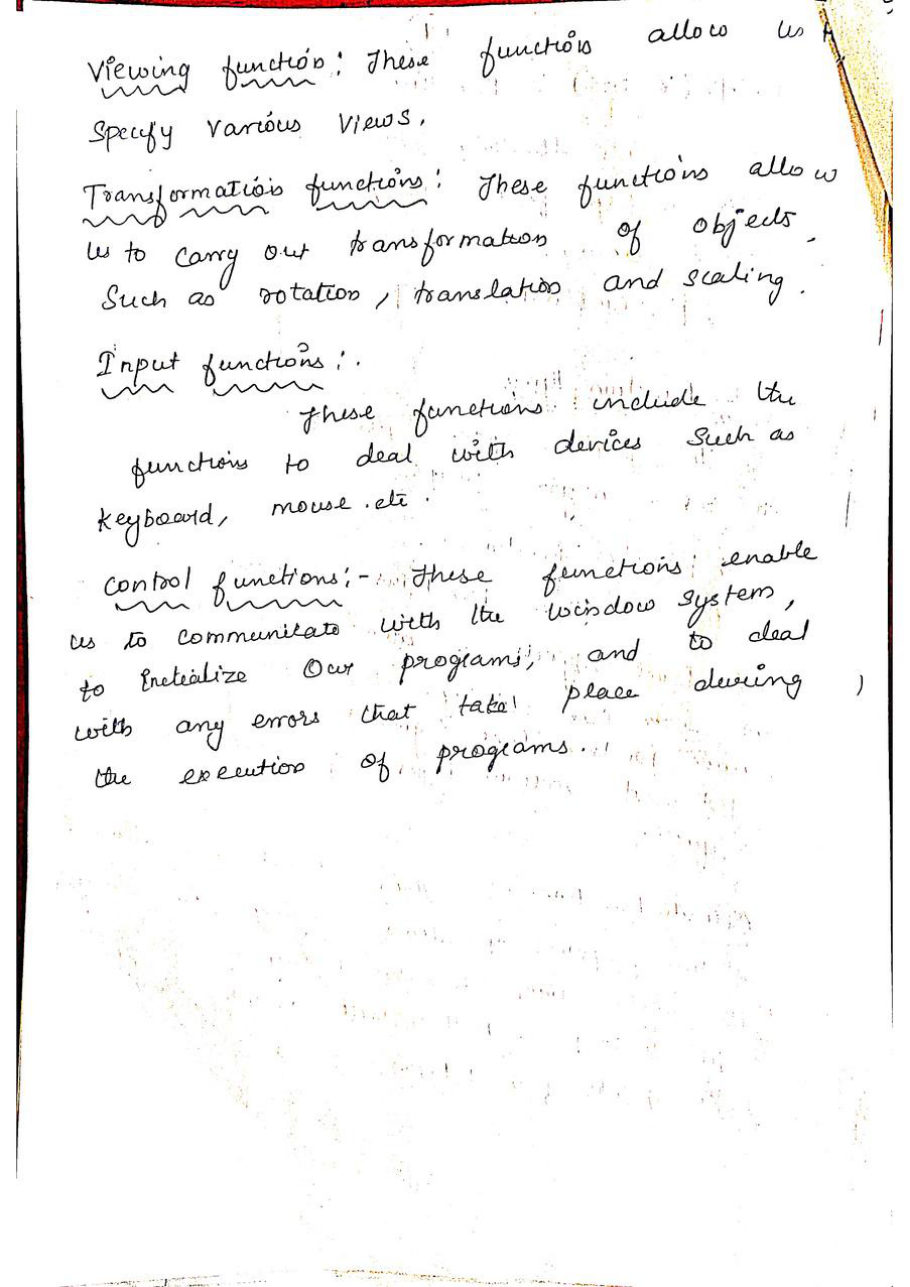 Viewing function: These functions allow us
Specify various views.
Transformation functions: These functions allow
us to carry out transformation of objects.
Such as rotation, translation and scaling.
Input functions:.
These functions include the
functions to deal with devices Such as
Keyboard, mouse.etc.
Control functions:- These functions enable
us to communicate with the window system,
to initialize Our programs, and to deal
with any errors that take place during
the execution of programs.